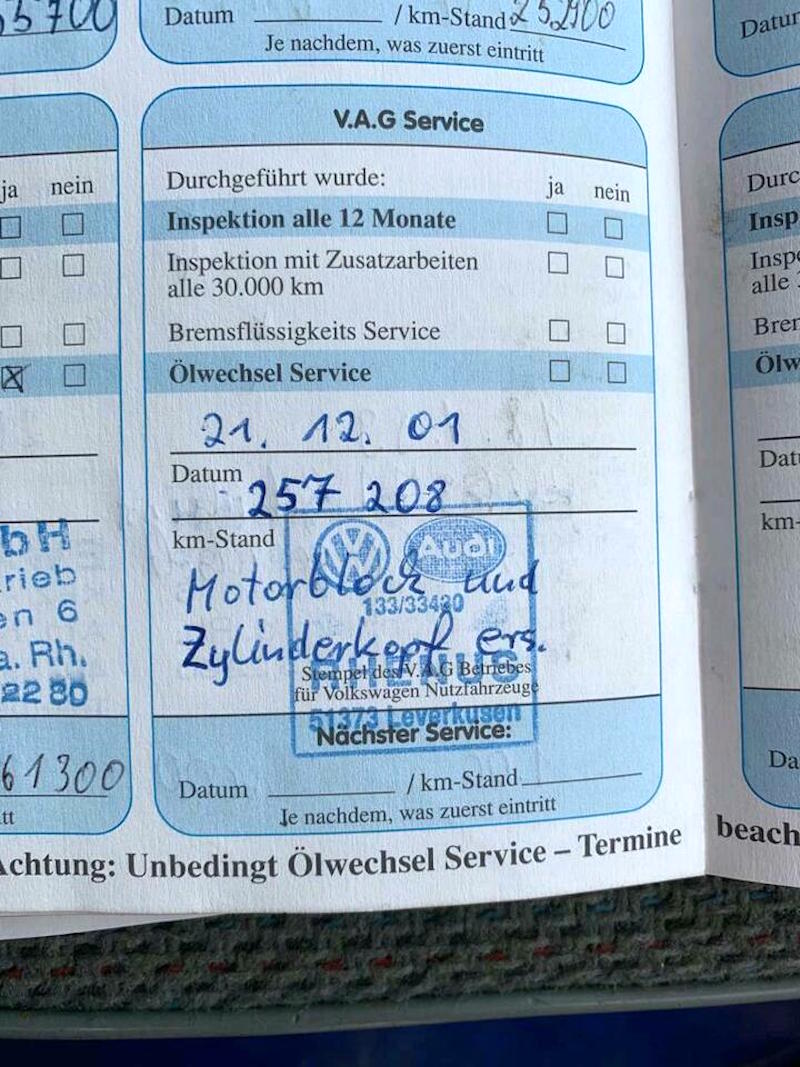 53700
Datum / km-Stand 252900
Je nachdem, was zuerst eintritt
Datum
V.A.G Service
ja nein
Durchgeführt wurde: ja nein
Inspektion alle 12 Monate
Inspektion mit Zusatzarbeiten
alle 30.000 km
Bremsflüssigkeits Service
Ölwechsel Service
21. 12. 01
Datum
257 208
km-Stand
VW Audi
Motorblock und
133/33420
Zylinderkopf ers.
Stempel des V.A.G Betriebes
für Volkswagen Nutzfahrzeuge
51373 Leverkusen
Nächster Service:
Datum / km-Stand
Je nachdem, was zuerst eintritt
bH
rieb
en 6
a. Rh.
22 80
61300
tt
Achtung: Unbedingt Ölwechsel Service – Termine beach
Durc
Insp
Inspe
alle
Brem
Ölw
Datu
km-
Da